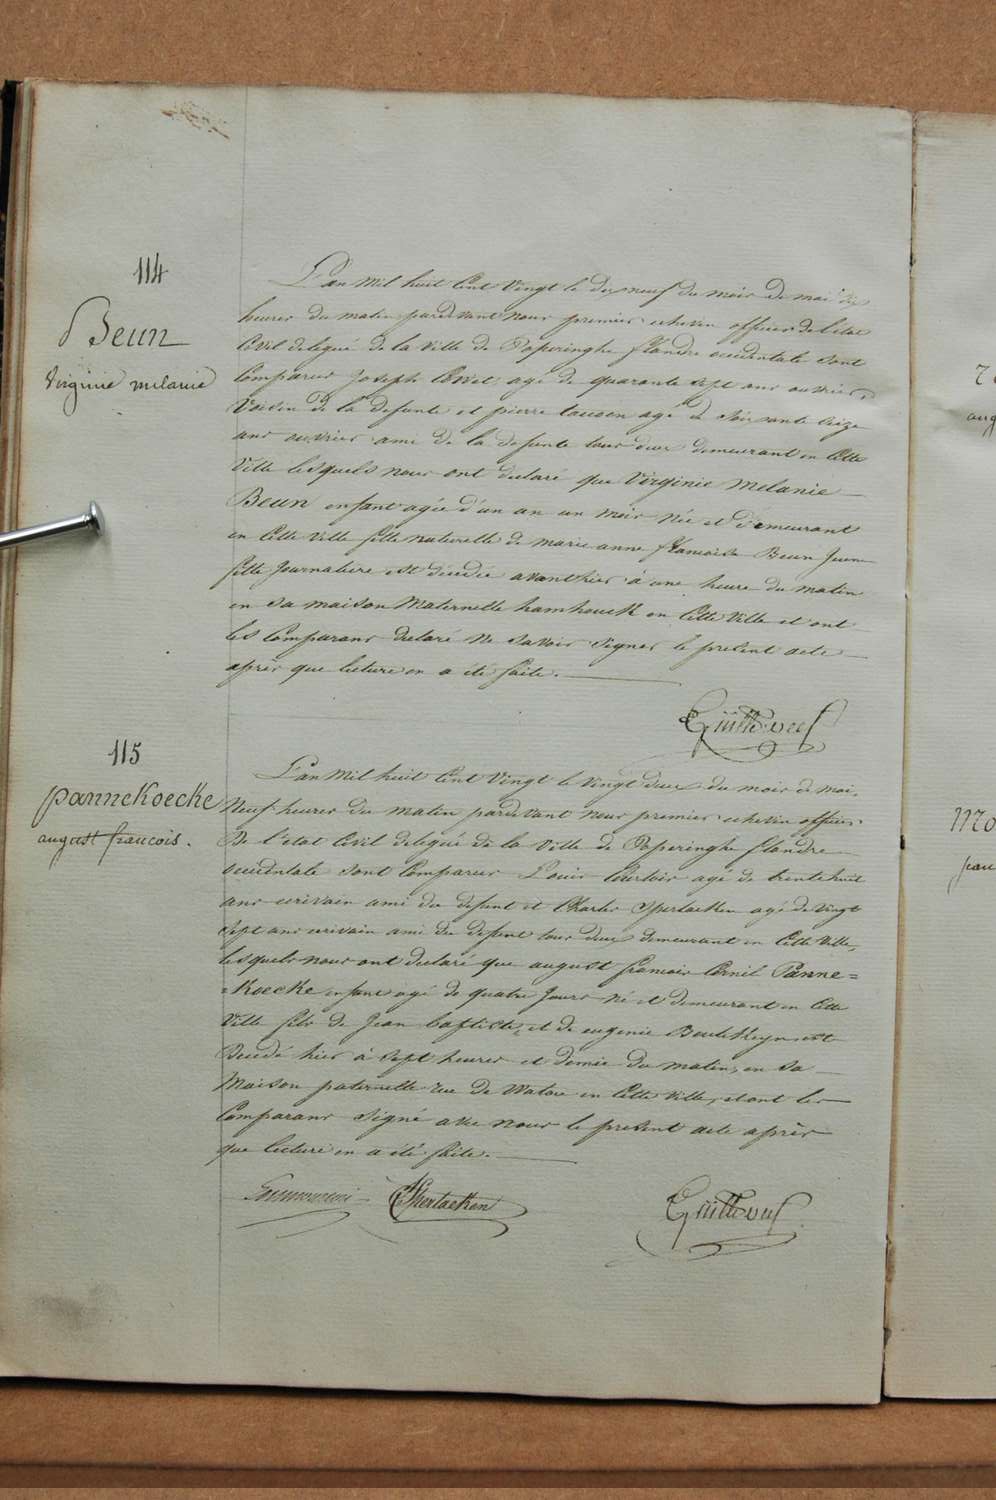 114
Beun
Virginie melanie
L'an Mil huit Cent Vingt le dix neuf du mois de mai dix
heures du matin pardevant nous premier echevin officier de l'etat
Civil delegué de la Ville de Poperinghe flandre occidentale sont
Comparus Joseph agé de quarante sept ans ouvrier,
Voisin de la defunte et pierre agé de soixante seize
ans ouvrier ami de la defunte tous deux demeurant en Cette
Ville lesquels nous ont declaré que Virginie Melanie
Beun enfant agée d'un an un mois née et demeurant
en Cette Ville fille naturelle de marie anne francoise Beun Jeune
fille Journaliere est décédée avanthier à une heure du matin
en sa maison Maternelle hamhouck en Cette Ville et ont
les Comparans declaré ne savoir signer le present acte
après que lecture en a été faite.
115
pannekoecke
august francois.
L'an Mil huit Cent Vingt le vingt deux du mois de mai,
Neuf heures du matin pardevant nous premier echevin officier
De l'etat Civil delegué de la Ville de Poperinghe flandre
occidentale sont Comparus Louis agé de trente huit
ans ecrivain ami du defunt et Charles Spertaeken agé de Vingt
Sept ans ecrivain ami du defunt tous deux demeurant en Cette Ville,
lesquels nous ont declaré que august francois Cornil Panne=
=Koecke enfant agé de quatre Jours né et demeurant en Cette
Ville fils de Jean baptiste, et de eugenie est
Decedé hier à sept heures et demie du matin, en sa
Maison paternelle rue de Watou en Cette Ville, et ont les
Comparans signé avec nous le present acte après
que lecture en a été faite.
Spertaeken